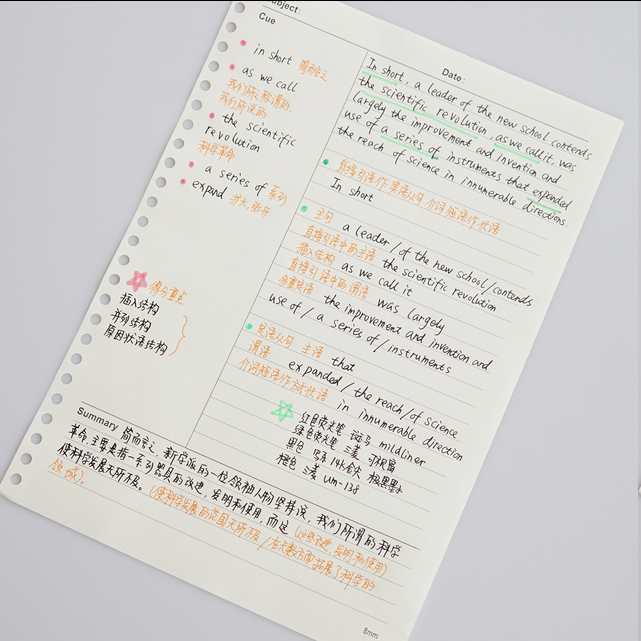 Subject:
Cue
in short 简而言之
as we call
我们所称谓的,
我们所说的
the scientific
revolution
科学革命
a series of 系列
expand 扩大.展开
得分重点
插入结构
并列结构
原因状语结构
Date:
In short, a leader of the new school contends
the scientific revolution, as we call it, was
largely the improvement and invention and
use of a series of instruments that expanded
the reach of science in innumerable directions.
直接引语作宾语从句 介词短语作状语
In short
主句 a leader/of the new school/contends
直接引语中的主语 the scientific revolution
插入结构 as we call it
直接引语中的谓语 was largely
多重宾语 the improvement and invention and
use of/a series of/instruments
定语从句 主语 that
谓语 expanded/the reach/of science
介词短语作状语 in innumerable direction
红色荧光笔 斑马 mildliner
绿色荧光笔 三菱
黑色
橙色 三菱 um-138
Summary 简而言之, 新学派的一位领袖人物坚持说, 我们所谓的科学
革命, 主要是指一系列器具的改进, 发明和使用, 而这 (这些改进, 发明和使用)
使科学发展无所不及. (使科学发展的范围无所不及/在无数方面拓展了科学的
领域).
8mm